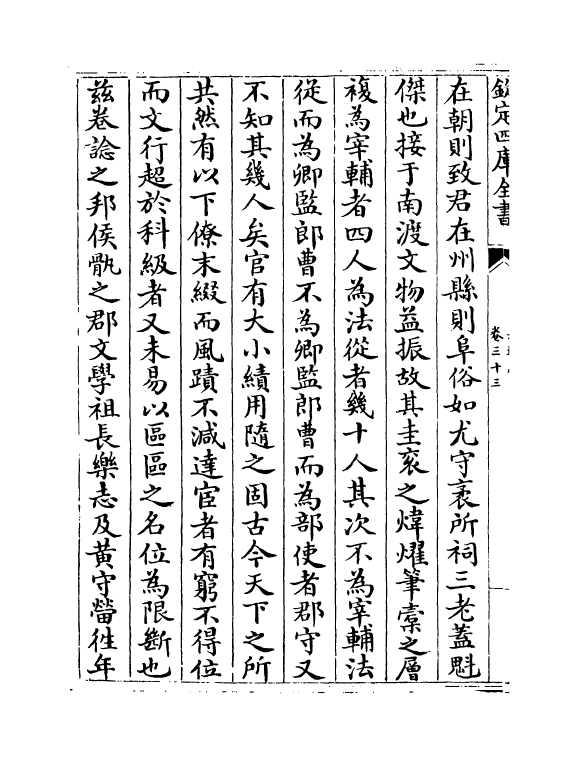 欽定四庫全書
卷三十三
在朝則致君在州縣則阜俗如尤守袤所祠三老蓋魁
傑也接于南渡文物益振故其圭袞之煒燿筆橐之層
複為宰輔者四人為法從者幾十人其次不為宰輔法
從而為卿監郎曹不為卿監郎曹而為部使者郡守又
不知其幾人矣官有大小績用隨之固古今天下之所
共然有以下僚末綴而風蹟不減達宦者有窮不得位
而文行超於科級者又未易以區區之名位為限斷也
茲卷諗之邦侯骩之郡文學祖長樂志及黃守𤲞徃年